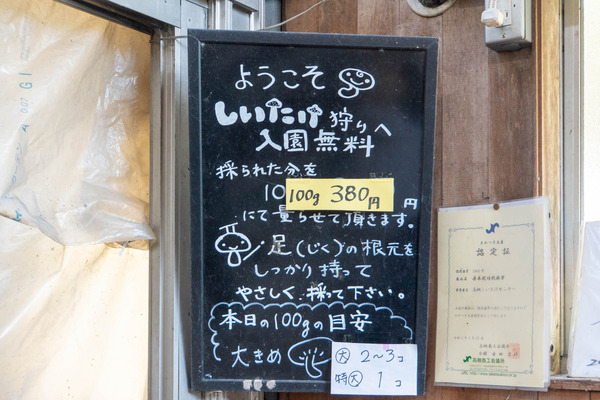 ようこそ
しいたけ狩りへ
入園無料
採られた分を
10 100g 380円 円
にて量らせて頂きます。
足(じく)の根元を
しっかり持って
やさしく採って下さい。
本日の100gの目安
大きめ
大 2〜3コ
特大 1コ
認定証
高槻商工会議所